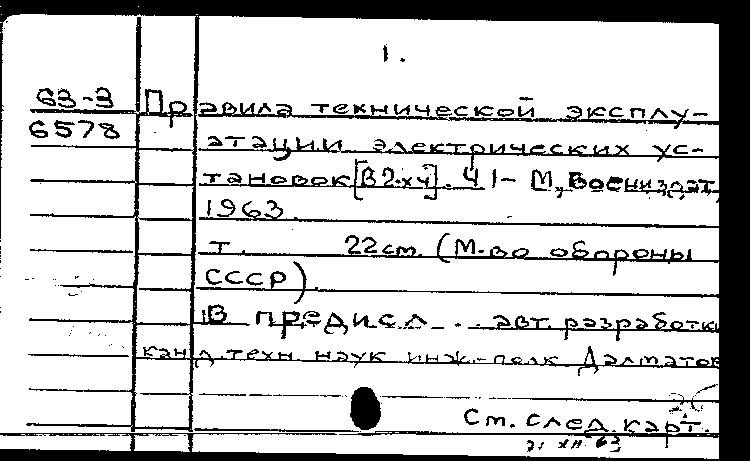 1.
63-3 Правила технической эксплу-
6578 атации электрических ус-
тановок [В 2-х ч]. Ч 1- М, Воениздат,
1963.
т. 22 см. (М-во обороны
СССР)
В предисл. . авт. разработки
канд. техн. наук инж.-полк Далматов
См. след. карт.
21 XII 63